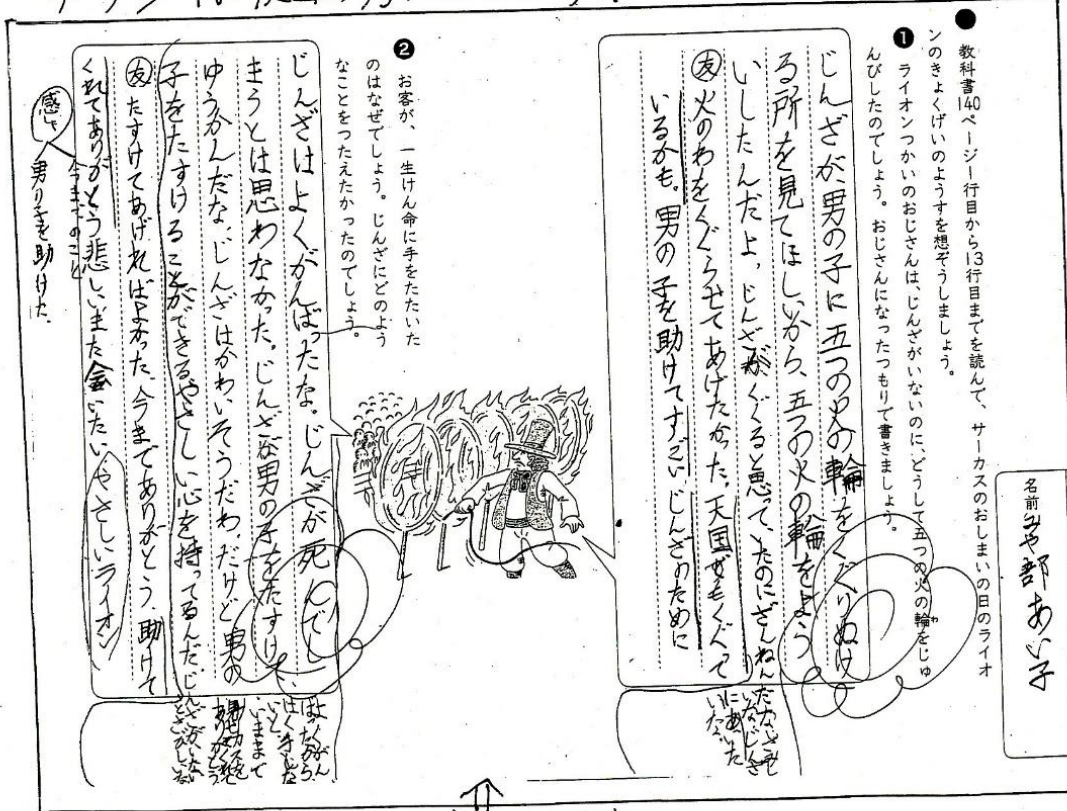 名前 みや部あい子
● 教科書140ページ1行目から13行目までを読んで、サーカスのおしまいの日のライオ
ンのきょくげいのようすを想ぞうしましょう。
❶ ライオンつかいのおじさんは、じんざがいないのに、どうして五つの火の輪をじゅ
んびしたのでしょう。おじさんになったつもりで書きましょう。
わ
じんざが男の子に五つの火の輪をくぐりぬけ
る所を見てほしいから、五つの火の輪をよう
いしたんだよ。じんざがくぐると思って、いたのにざんねん
㊛火のわをくぐらせてあげたかった。天国でもくぐって
いるかも。男の子を助けてすごいじんざのために
❷ お客が、一生けん命に手をたたいた
のはなぜでしょう。じんざにどのよう
なことをつたえたかったのでしょう。
じんざはよくがんばったな。じんざが死んでし
まうとは思わなかった。じんざは男の子をたすけて
ゆうかんだな。じんざはかわいそうだわ。だけど男の
子をたすけることができるやさしい心を持ってるんだ。
たすけてあげればよかった。今までありがとう。助けて
くれてありがとう悲しいまた会いたいやさしいライオン
感
今までのこと
男の子を助けた。